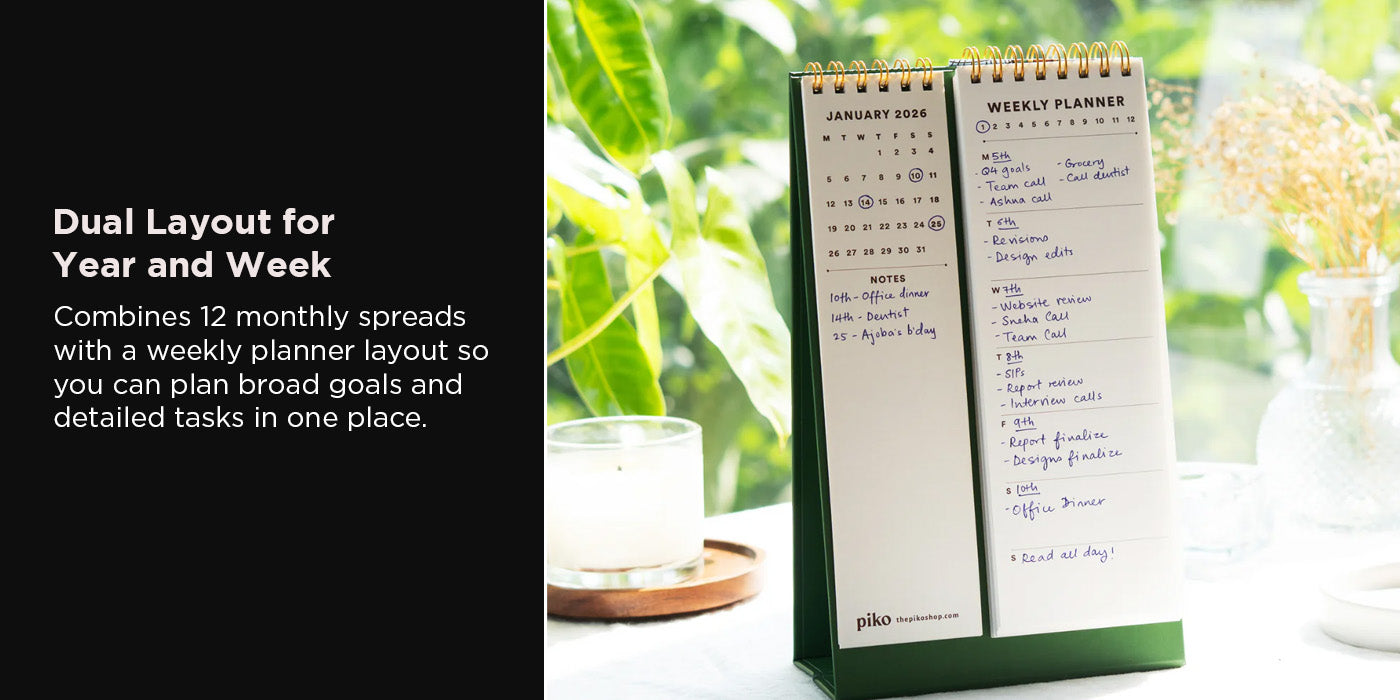 Dual Layout for
Year and Week
Combines 12 monthly spreads
with a weekly planner layout so
you can plan broad goals and
detailed tasks in one place.
JANUARY 2026
M T W T F S S
1 2 3 4
5 6 7 8 9 10 11
12 13 14 15 16 17 18
19 20 21 22 23 24 25
26 27 28 29 30 31
NOTES
10th - Office dinner
14th - Dentist
25 - Ajoba's b'day
piko thepikoshop.com
WEEKLY PLANNER
1 2 3 4 5 6 7 8 9 10 11 12
M 5th
- Q4 goals
- Team call
- Ashna call
- Grocery
- Call dentist
T 6th
- Revisions
- Design edits
W 7th
- Website review
- Sneha Call
- Team Call
T 8th
- SIPs
- Report review
- Interview calls
F 9th
- Report finalize
- Designs finalize
S 10th
- Office Dinner
S Read all day!